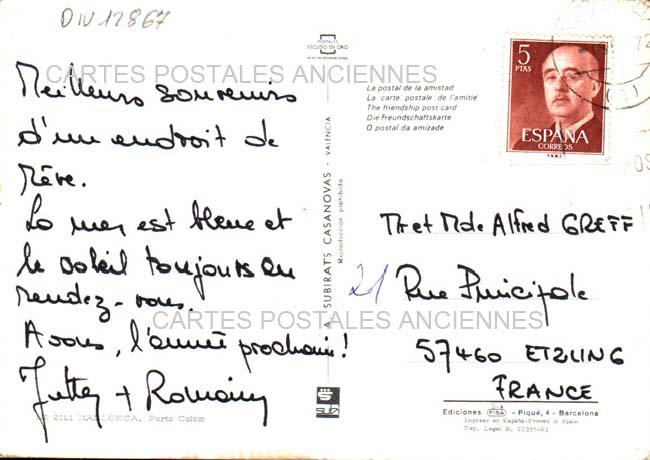 DIV12867
POSTALES
ESCUDO DE ORO
CARTES POSTALES ANCIENNES
Meilleurs souvenirs
d'un endroit de
Rêve.
La mer est bleue et
le soleil toujours au
rendez-vous.
A vous, l'année prochaine!
Jutta + Romain
2141 MALLORCA, Porto Colom
La postal de la amistad
La carte postale de l'amitié
The friendship post card
Die Freundschaftskarte
O postal da amizade
A SUBIRATS CASANOVAS - VALENCIA
Reproducción prohibida
5
PTAS
ESPAÑA
CORREOS
F.N.M.T.
72
Mr et Mde Alfred GREFF
21 Rue Principale
CARTES POSTALES ANCIENNES
57460 ETZLING
FRANCE
Ediciones FISA - Piqué, 4 - Barcelona
Impreso en España-Printed in Spain
Dep. Legal B. 10357-XI